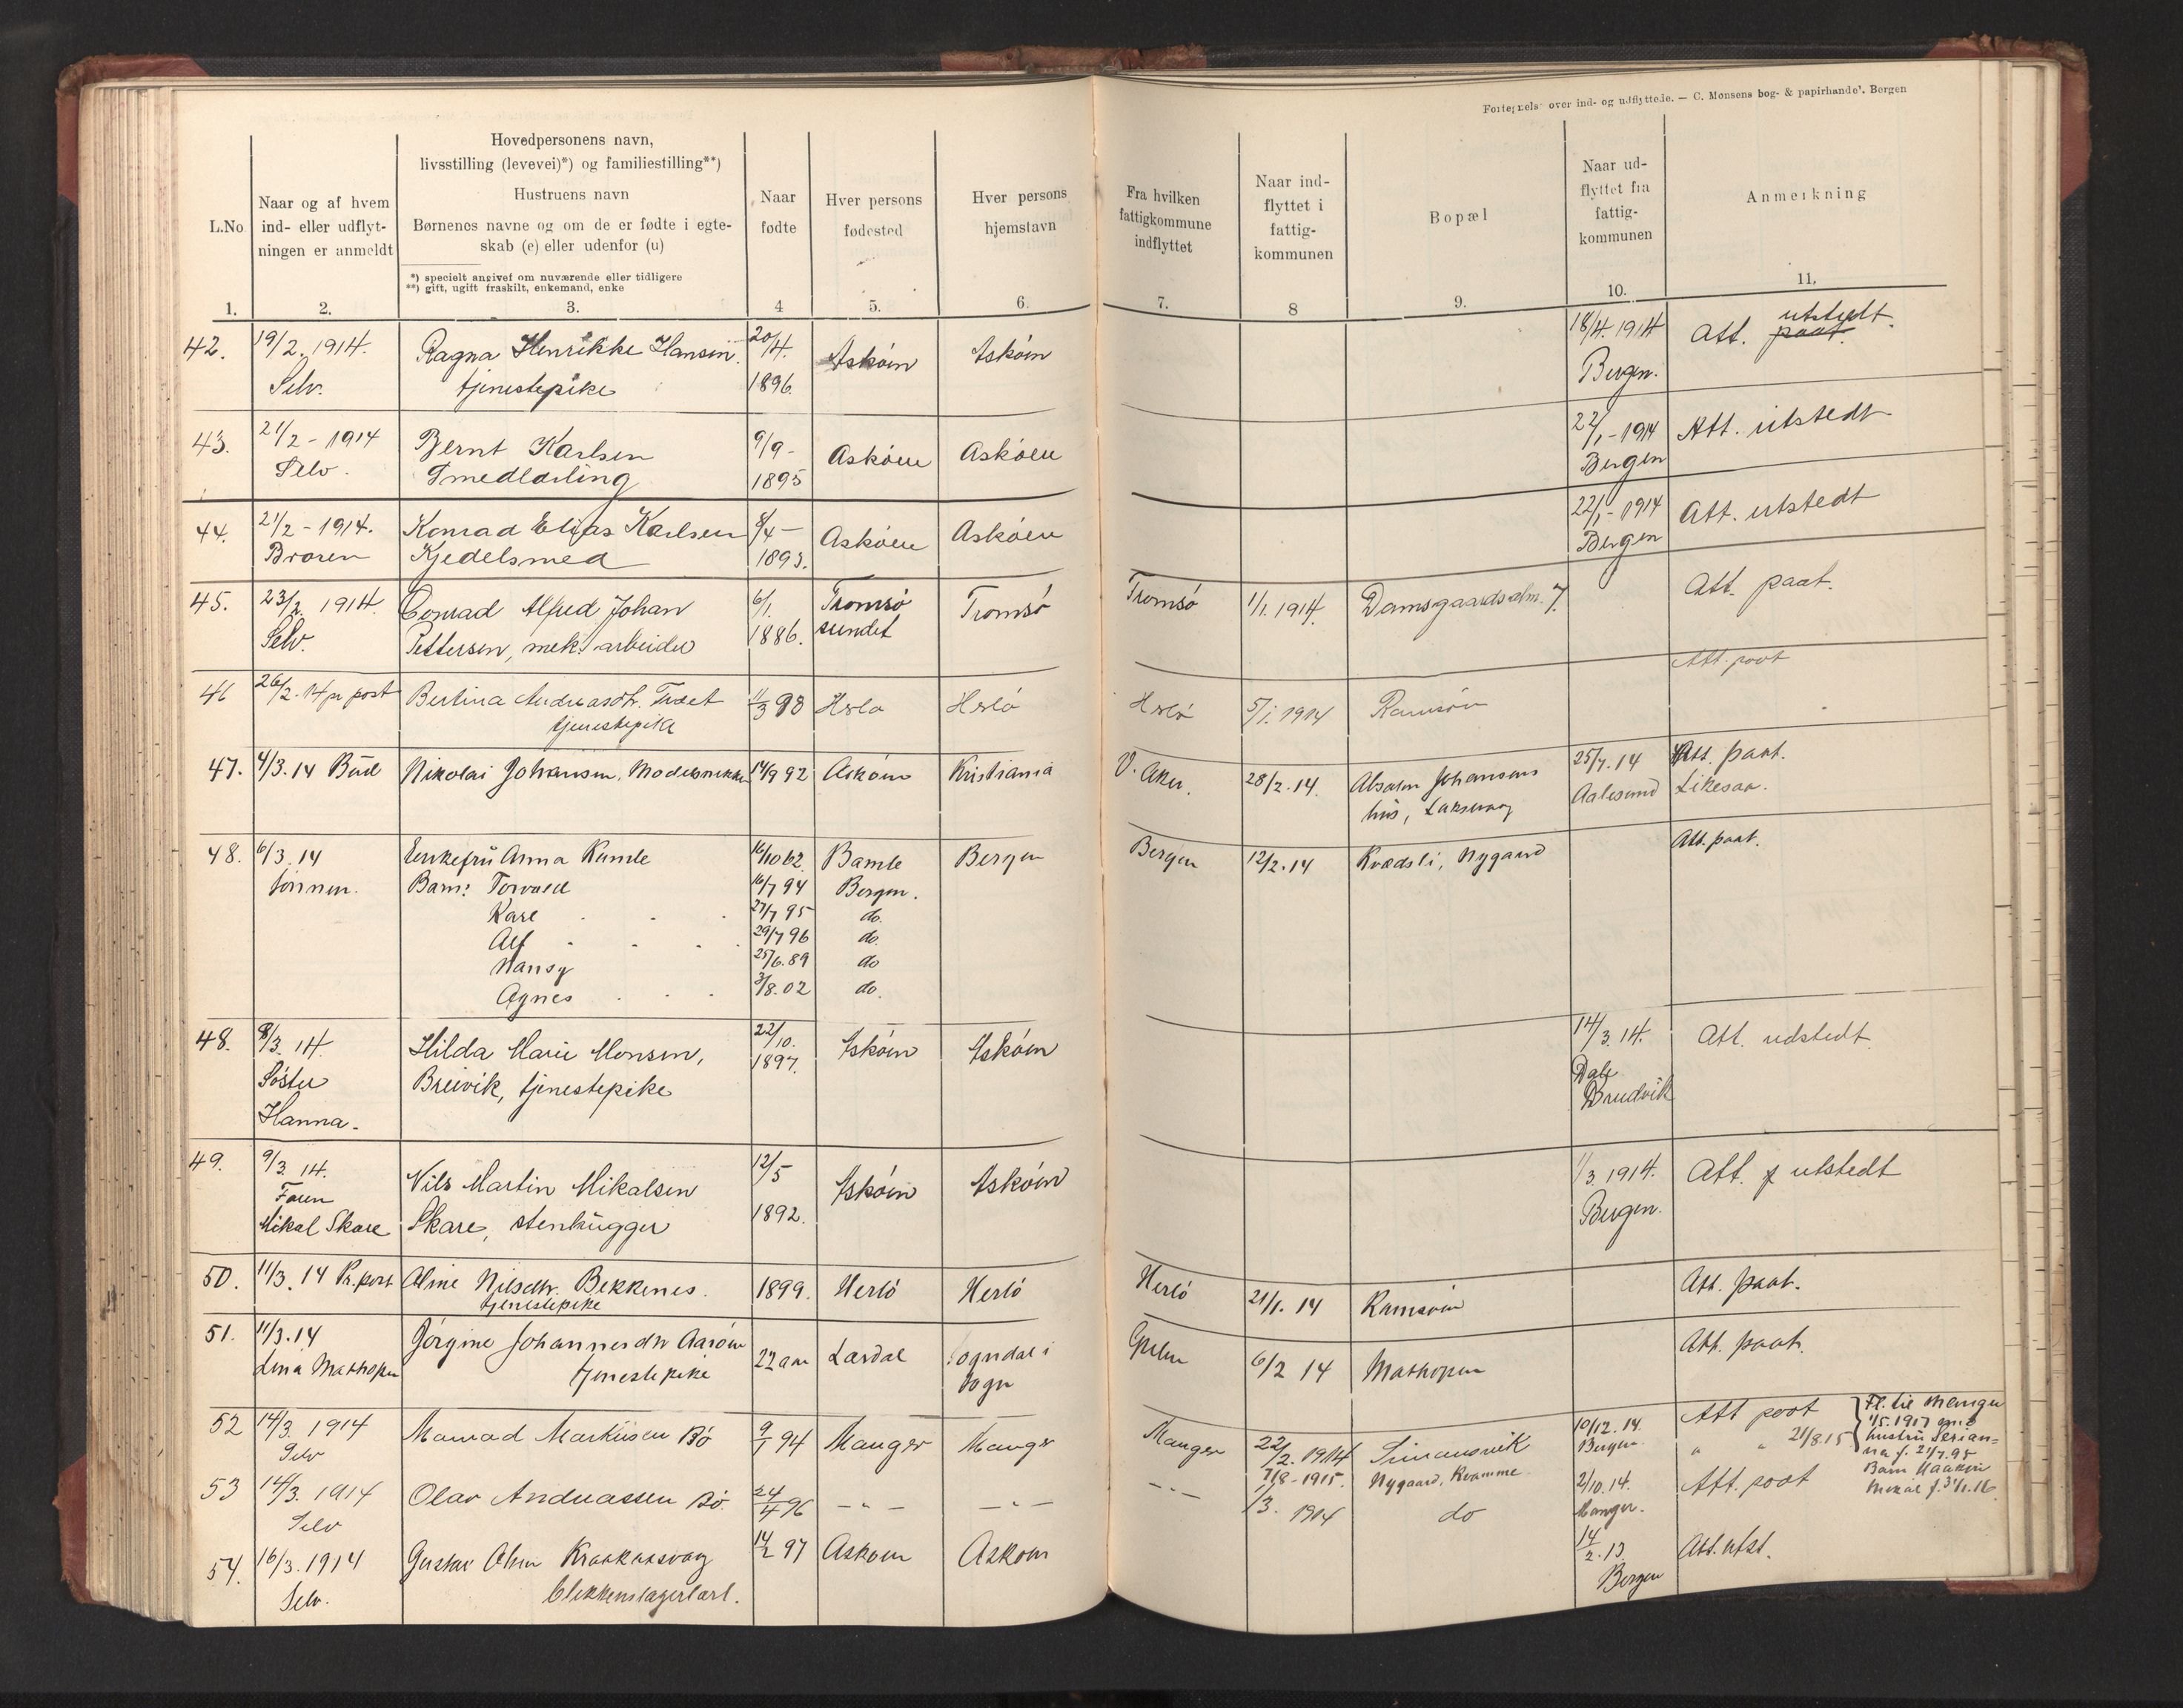 Fortegnelse over ind- og udflyttede. — C. Monsens bog- & papirhandel. Bergen
L.No
1.
Naar og af hvem
ind- eller udflyt-
ningen er anmeldt
2.
Hovedpersonens navn,
livsstilling (levevei)*) og familiestilling**)
Hustruens navn
Børnenes navne og om de er fødte i egte-
skab (e) eller udenfor (u)
*) specielt angivet om nuværende eller tidligere
**) gift, ugift fraskilt, enkemand, enke
3.
Naar
fødte
4
Hver persons
fødested
5.
Hver persons
hjemstavn
6.
Fra hvilken
fattigkommune
indflyttet
7.
Naar ind-
flyttet i
fattig-
kommunen
8
Bopæl
9.
Naar ud-
flyttet fra
fattig-
kommunen
10.
Anmerkning
11.
42. 19/2. 1914. Ragna Henrikke Hansen. 20/4. Askøen Askøen 18/4. 1914 Att. paat. utstedt.
Selv. tjenestepike 1896. Bergen.
43. 21/2 - 1914 Bernt Karlsen 9/9 - Askøen Askøen 22/1 - 1914 Att. utstedt
Selv. Smedlærling 1895 Bergen
44. 21/2 - 1914. Konrad Elias Karlsen 8/4 - Askøen Askøen 22/1 - 1914 Att. utstedt
Broren Kjedelsmed 1893. Bergen
45. 23/2. 1914. Conrad Alfred Johan 6/1. Tromsø Tromsø Tromsø 1/1. 1914. Damsgaardsalm. 7. Att. paat.
Selv. Pettersen, mek. arbeider 1886. sundet
46 26/2. 14 pr post Bertina Andreasdtr. 11/3 98 Herlø Herlø Herlø 5/1. 1914 Ramsøen Att. paat
tjenestepike
47. 4/3. 14 Bud Nikolai Johansen, Modelsnekker 14/9 92 Askøen Kristiania V. Aker. 28/2. 14. Absalon Johansens 25/7. 14 Att. paat.
hus, Laksevaag Aalesund Likesaa.
48. 6/3. 14 Enkefru Anna Kumle 16/10 62. Bamle Bergen Bergen 12/2. 14 Kvædsli, Nygaard Att. paat.
Sønnen. Barn: Torvald 16/7 94 Bergen.
Kare 27/7 95 do.
Alf 29/7 96 do.
Nansy 25/6. 89 do
Agnes 3/8. 02 do.
48. 8/3. 14. Hilda Marie Monsen, 22/10. Askøen Askøen 14/3. 14. Att. udstedt
Søster Breivik, tjenestepike 1897. Dale
Hanna. Brudvik
49. 9/3. 14. Nils Martin Mikalsen 12/5 Askøen Askøen 1/3. 1914. Att. utstedt
Faren
Mikal Skare Skare, stenhugger 1892. Bergen.
50. 11/3. 14 Pr. post Aline Nilsdtr. Bekkenes. 1899. Herlø Herlø Herlø 21/1. 14 Ramsøen Att. paat.
tjenestepike
51. 11/3. 14 Jørgine Johannesdtr Aarøen 22 aar Lærdal Sogndal i 6/2 14 Mathopen Att. paat.
Lina Mathopen tjenestepike Sogn
52 14/3. 1914 Markusen Bø 9/1 94 Manger Manger Manger 22/2. 1914 Simonsvik 10/12. 14. Att paat Fl. til Manger
Selv 7/8 - 1915. Nygaard, Kvamme. Bergen. " " 21/8 15 1/5. 1917 med
hustru Serian-
na f. 21/7. 95
Barn Haakon
Mikal f. 3/1. 16.
53 14/3. 1914 Olav Andreassen Bø. 24/4 96 — " — — " — — " — 1/3. 1914 do 2/10. 14. Att. paat
Selv Manger.
54. 16/3. 1914 Gustav Olsen Kraakaasvaag 14/2 97 Askøen Askøen 14/2. 13. Att. utst.
Selv. blikkenslagerlærl. Bergen